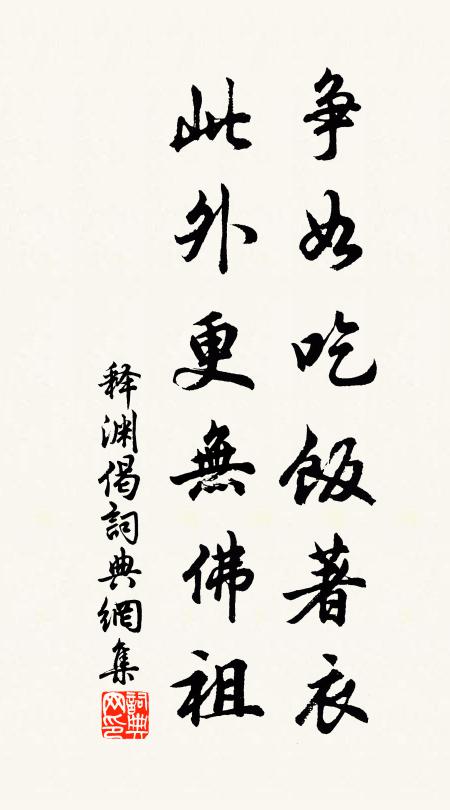 争如吃飯著衣
此外更無佛祖
释渊偈詞典網集
詞典网印